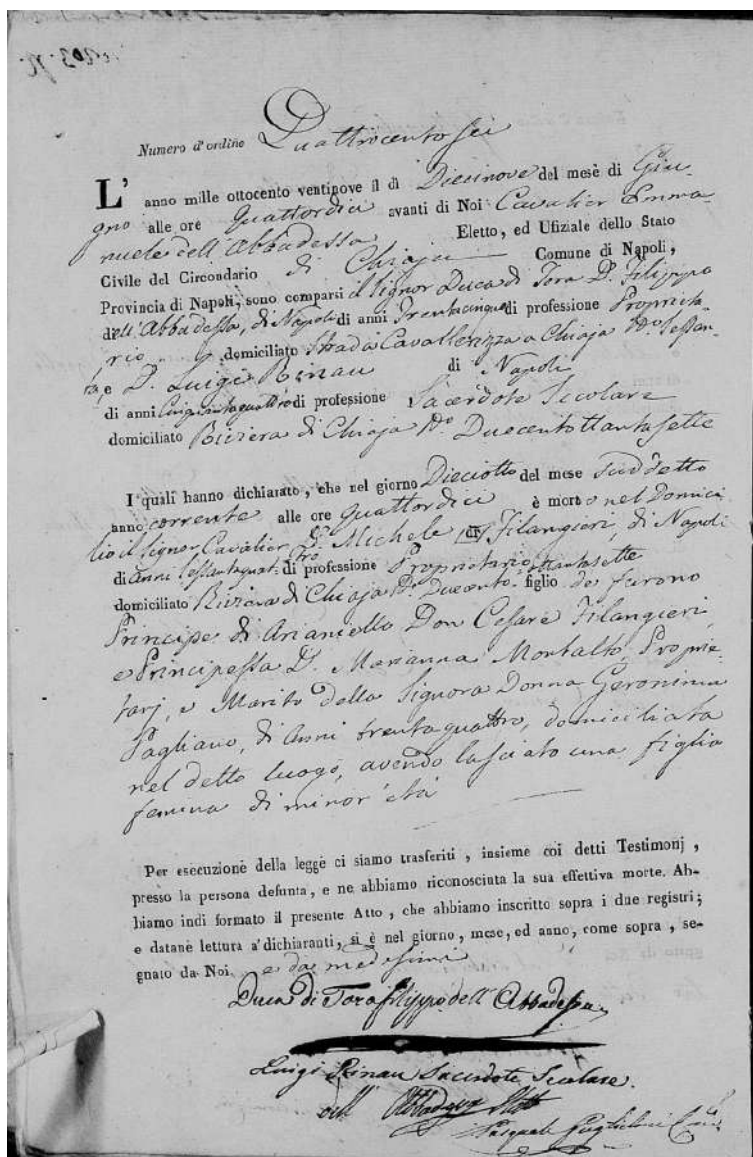 Numero d'ordine Quattrocento sei
L' anno mille ottocento ventinove il dì Diecinove del mesè di Giu-
gno alle ore Quattordici avanti di Noi Cavalier Emma-
nuele dell'Abbadessa Eletto, ed Ufiziale dello Stato
Civile del Circondario di Chiaja Comune di Napoli,
Provincia di Napoli, sono comparsi il Signor Duca di Tora D. Filippo
dell'Abbadessa, di Napoli di anni Trentacinque di professione Proprieta-
rio domiciliato Strada Cavallerizza a Chiaja No. Sessan-
ta, e D. Luigi Rinau di Napoli
di anni Cinquantaquattro di professione Sacerdote Secolare
domiciliato Riviera di Chiaja No. Duecentottantasette
I quali hanno dichiarato, che nel giorno Dieciotto del mese suddetto
anno corrente alle ore quattordici è morto nel Domici-
lio il Signor Cavalier Michele Filangieri, di Napoli
di anni di professione Proprietario
domiciliato Riviera di Chiaja No. Duecento ottantasette figlio de' furono
Principe di Arianiello Don Cesare Filangieri,
e Principessa D. Marianna Montalto Proprie-
tarj, e Marito della Signora Donna Geronima
Pagliano, di anni trentaquattro, domiciliata
nel detto luogo, avendo lasciato una figlia
femina di minor età
Per esecuzione della legge ci siamo trasferiti, insieme coi detti Testimonj,
presso la persona defunta, e ne abbiamo riconosciuta la sua effettiva morte. Ab-
biamo indi formato il presente Atto, che abbiamo inscritto sopra i due registri;
e datane lettura a' dichiaranti, si è nel giorno, mese, ed anno, come sopra, se-
gnato da Noi e da medesimi
Duca di Tora Filippo dell'Abbadessa
Luigi Rinau Sacerdote Secolare
dell' Abbadessa
Pasquale